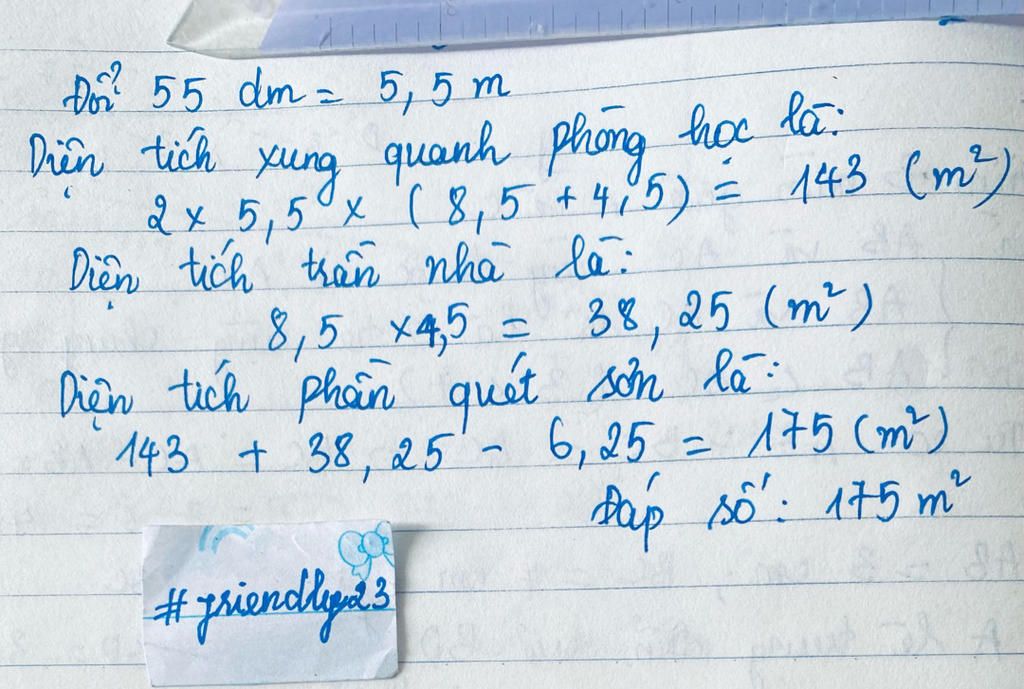 Đổi 55 dm = 5,5 m
Diện tích xung quanh phòng học là:
2 x 5,5 x ( 8,5 + 4,5) = 143 (m²)
Diện tích trần nhà là:
8,5 x 4,5 = 38,25 (m²)
Diện tích phần quét sơn là:
143 + 38,25 - 6,25 = 175 (m²)
Đáp số: 175 m²
#friendly23